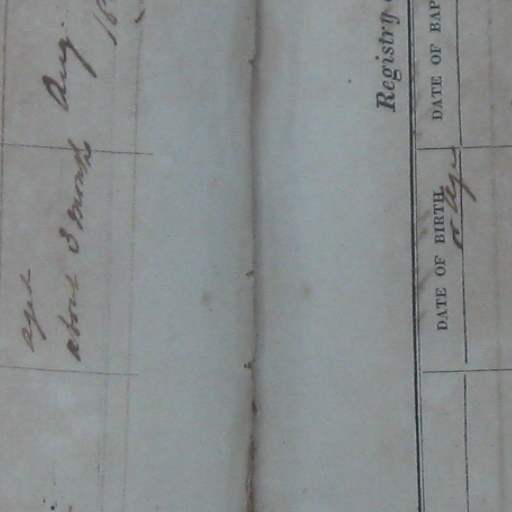 aged
about 3 months
Aug.
18
Registry
DATE OF BIRTH
or Age
DATE OF BAP